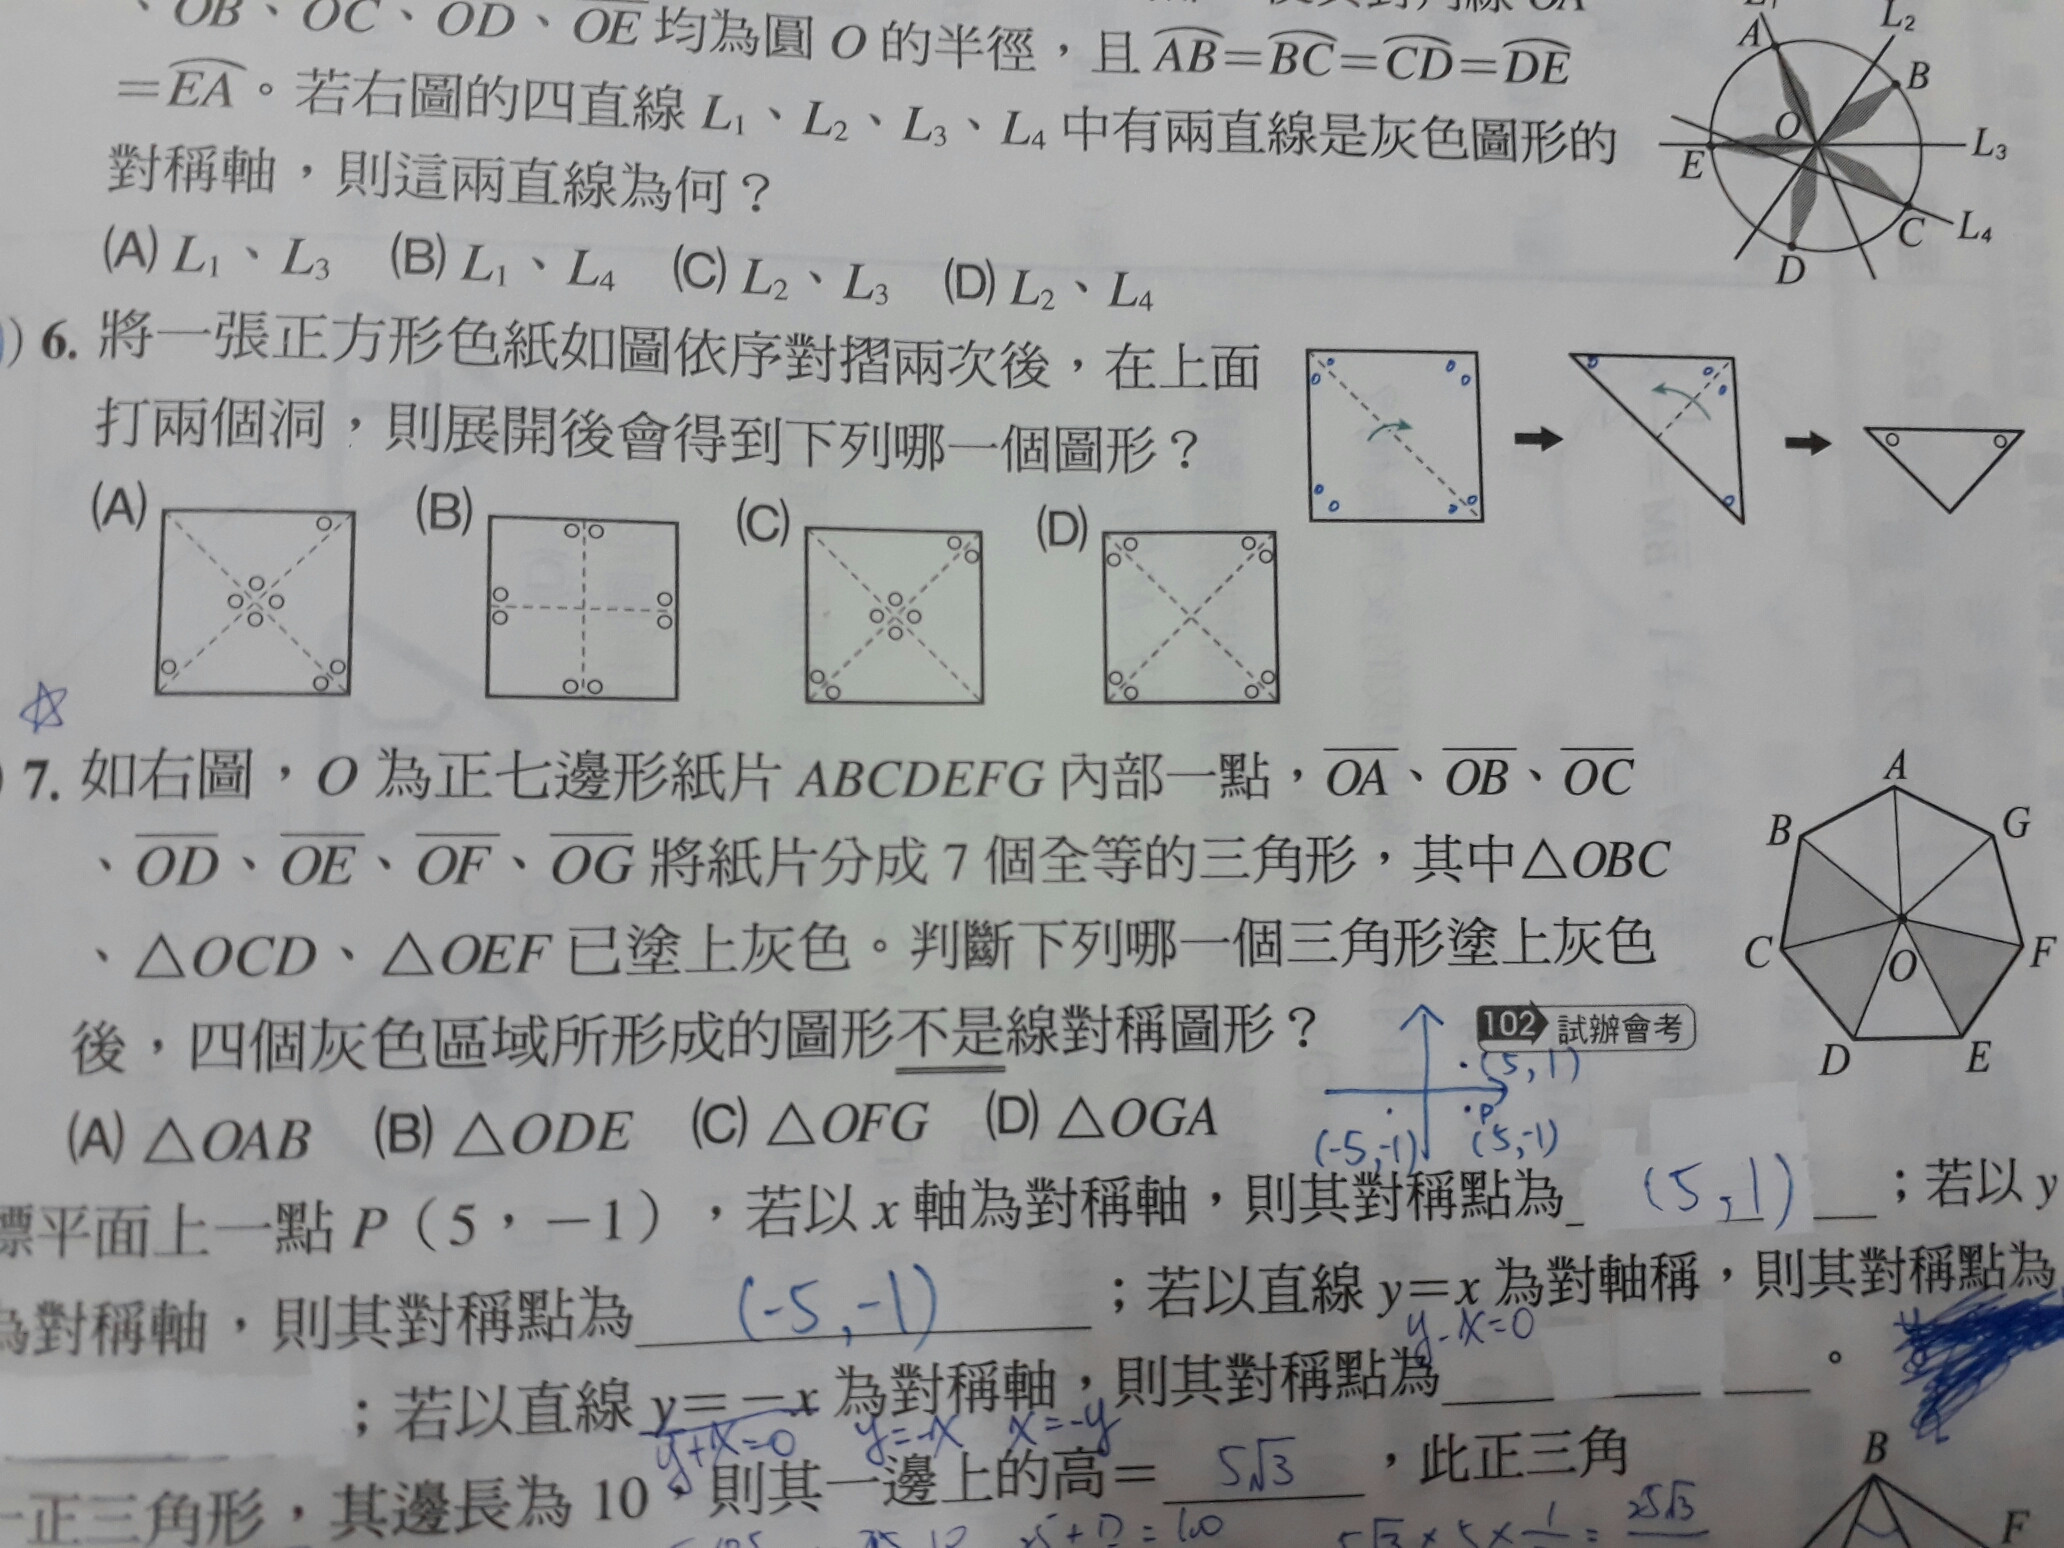 、OB、OC、OD、OE 均為圓 O 的半徑，且 AB=BC=CD=DE
=EA。若右圖的四直線 L1、L2、L3、L4 中有兩直線是灰色圖形的
對稱軸，則這兩直線為何？
(A) L1、L3 (B) L1、L4 (C) L2、L3 (D) L2、L4
A L2 B O L3 E C L4 D
) 6. 將一張正方形色紙如圖依序對摺兩次後，在上面
打兩個洞，則展開後會得到下列哪一個圖形？
(A) (B) (C) (D)
) 7. 如右圖，O 為正七邊形紙片 ABCDEFG 內部一點，OA、OB、OC
、OD、OE、OF、OG 將紙片分成 7 個全等的三角形，其中△OBC
、△OCD、△OEF 已塗上灰色。判斷下列哪一個三角形塗上灰色
後，四個灰色區域所形成的圖形不是線對稱圖形？ 102 試辦會考
(A) △OAB (B) △ODE (C) △OFG (D) △OGA
A B G C O F D E
(5,1)
P
(-5,-1) (5,-1)
標平面上一點 P（5，－1），若以 x 軸為對稱軸，則其對稱點為 (5,1) ；若以 y
為對稱軸，則其對稱點為 (-5,-1) ；若以直線 y=x 為對軸稱，則其對稱點為
y-x=0
；若以直線 y=－x 為對稱軸，則其對稱點為 。
y+x=0 y=-x x=-y
一正三角形，其邊長為 10，則其一邊上的高= 5√3 ，此正三角
B
F